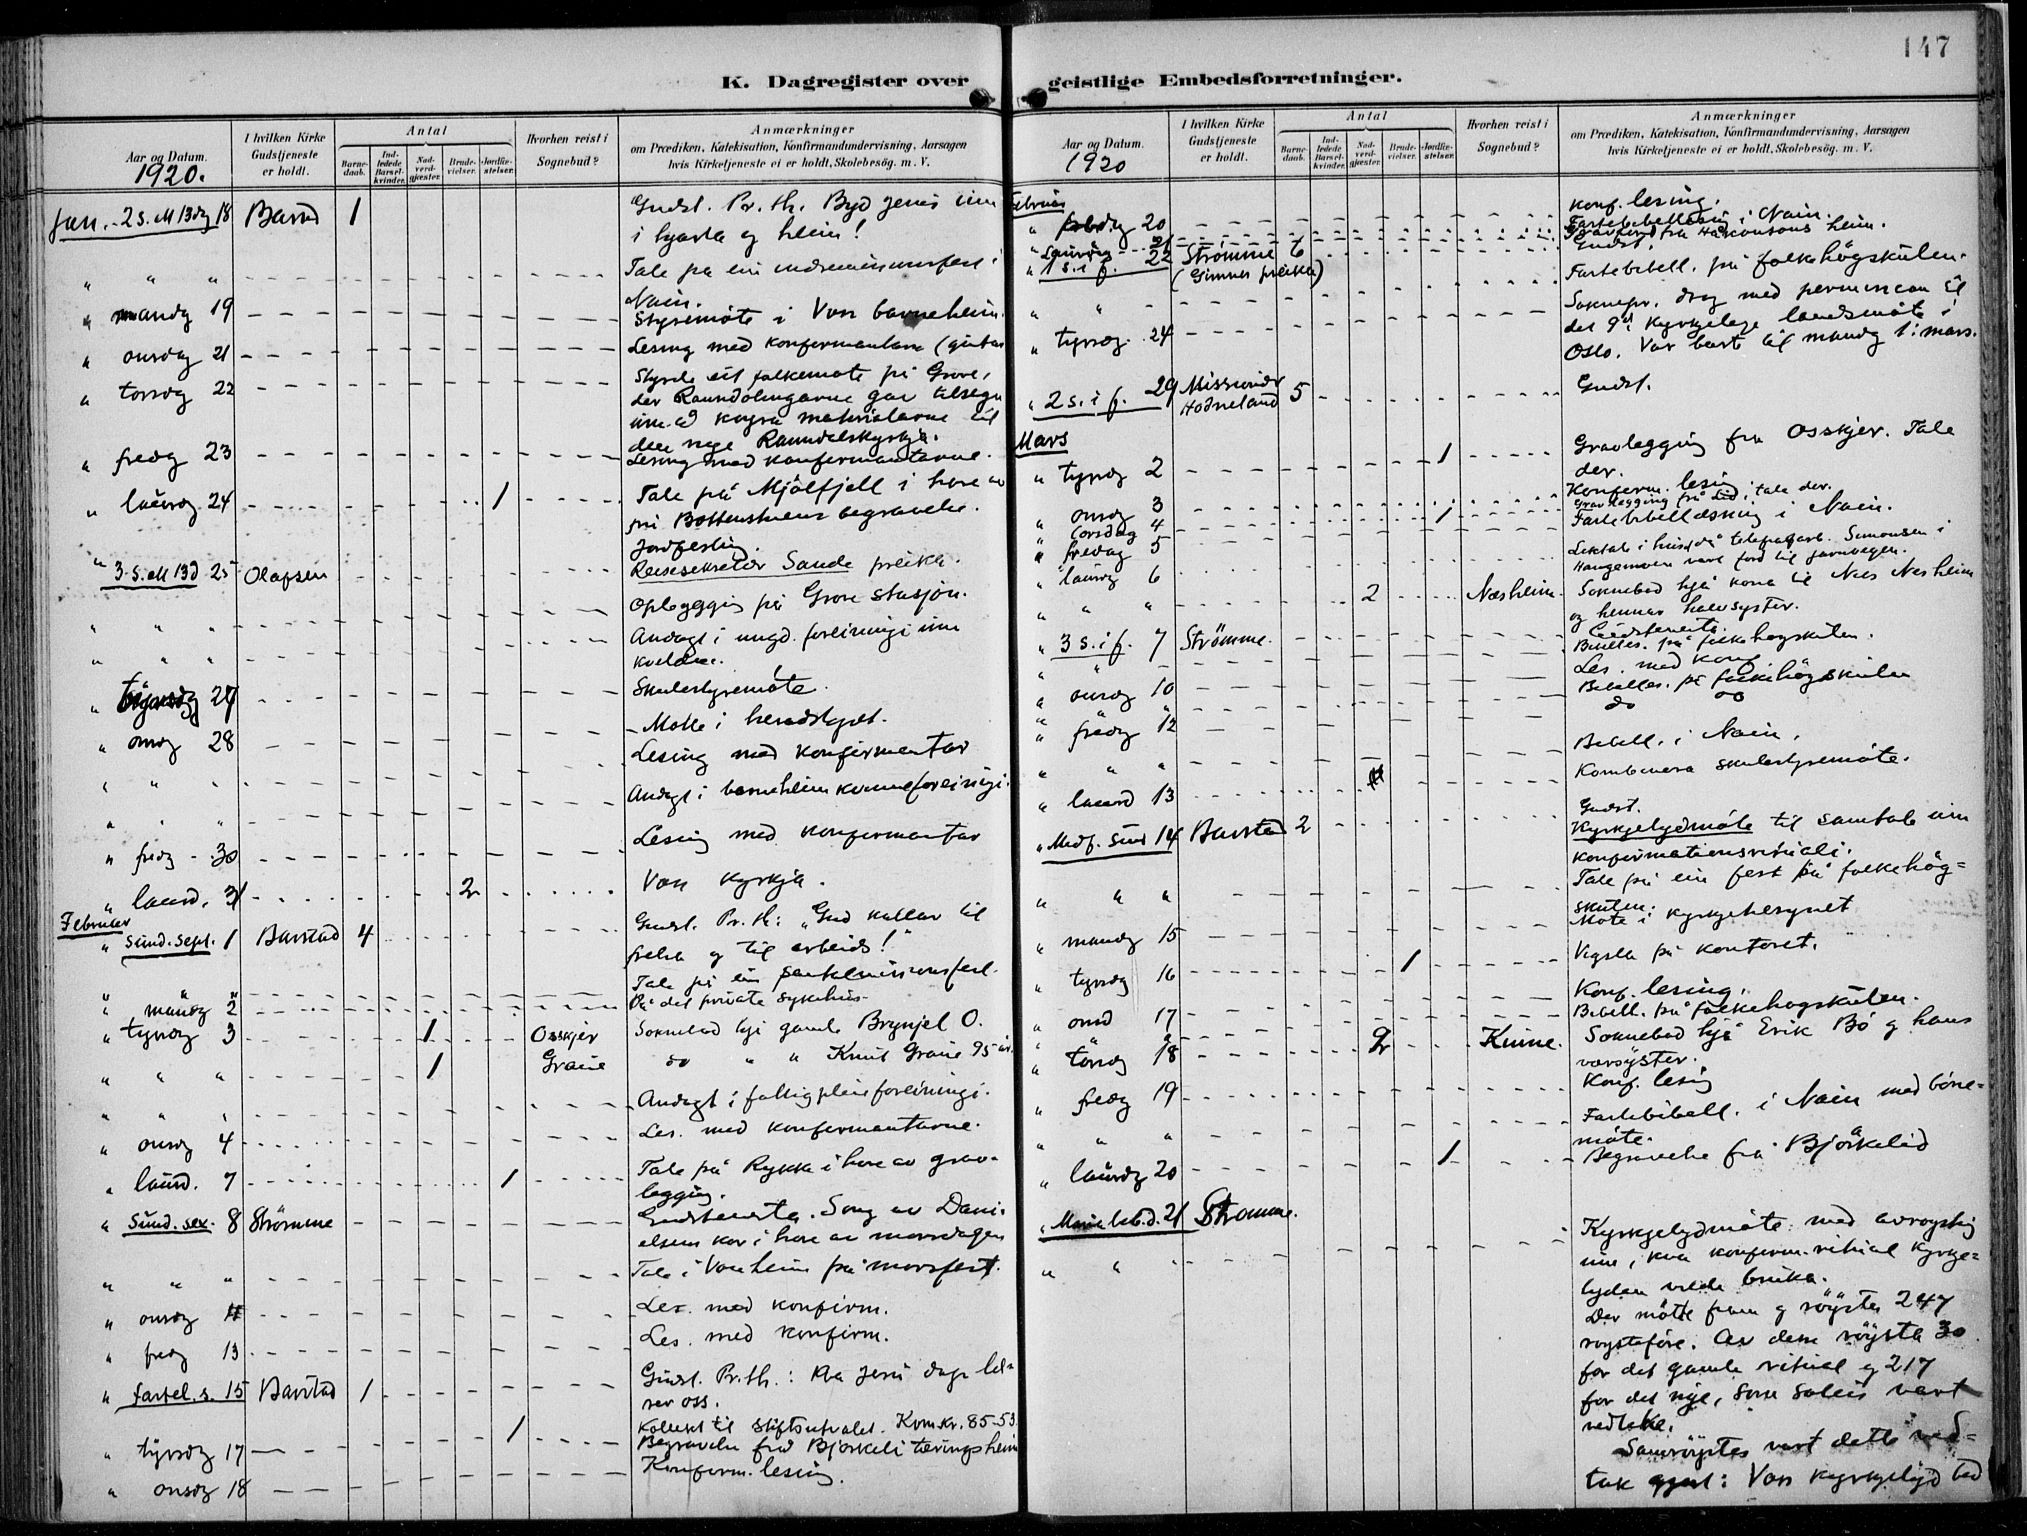 147
K. Dagregister over geistlige Embedsforretninger.
Aar og Datum.
1920.
I hvilken Kirke Gudstjeneste er holdt.
Antal
Barne-daab.
Ind-ledede Barsel-kvinder.
Nad-verd-gjester.
Brude-vielser.
Jordfæ-stelser.
Hvorhen reist i Sognebud?
Anmærkninger
om Prædiken, Katekisation, Konfirmandundervisning, Aarsagen
hvis Kirketjeneste ei er holdt, Skolebesög. m. V.
Jan. - 2 s. M 13dg 18 Barstad 1 Gudst. Pr. th. Byd Jesus inn
i hjarta og heim!
" " " Tale på ein indremisjonsfest i
Nain.
" mandg 19 Styremöte i Voss barneheim.
" onsdag 21 Lesing med konfirmantane (gutar
" torsdg 22 Styrde eit folkemöte på Grove,
der Raundölingarne gav tilsegn
um å köyra materialarne til
den nye Raundalskyrkja.
" fredg 23 Lesing med konfirmantarne.
" laurdg 24 1 Tale på Mjölfjell i höve av
begravelse.
Jordfesting.
" 3. S. M 13 d 25 Olafsen Reisesekretær Sande preika.
" " " Oplegging på Grove stasjon.
" " " Andagt i ungd. foreiningi um
kvelden.
" tysdg 27 Skulestyremöte.
" onsdg 28 Möte i heradstyret.
" " " Lesing med konfirmantar
" " " Andagt i barneheim kvinneforeiningi.
" fredg 30 Lesing med konfirmantar
" laurd. 31 2 Voss Kyrkja.
Februar
" Sund. sept. 1 Barstad 4 Gudst. Pr. th: "Gud kallar til
frelsa og til arbeid!"
" " " Tale på ein santalmisionsfest.
" mandg 2 På det private sykehus.
" tysdg 3 1 Osskjer Soknebod hjå gamle Brynjel O.
" " " 1 Graue do " " Knut Graue 95 år.
" " " Andagt i fattigpleieforeiningi.
" onsdg 4 Les. med konfirmantarne.
" laurd. 7 1 Tale på Rykke i höve av grav-
legging.
" Sund. sex. 8 Strömme Gudstenesta. Song av Dani-
elsens kor i höve av morsdagen
" " " Tale i Vossheim på morsfest.
" onsdg 11 Les. med konfirm.
" fredg 13 Les. med konfirm.
" Fastel. s. 15 Barstad 1 Gudst. Pr. th.: Kva Jesu dåp lær
rer oss.
Kollekt til stiftsutvalet. Kom kr. 85-53.
" tysdg 17 1 Begravelse frå Bjorkeli tæringsheim
" onsdg 18 Konfirm. lesing.
Aar og Datum.
1920
I hvilken Kirke Gudstjeneste er holdt.
Antal
Barne-daab.
Ind-ledede Barsel-kvinder.
Nad-verd-gjester.
Brude-vielser.
Jordfæ-stelser.
Hvorhen reist i Sognebud?
Anmærkninger
om Prædiken, Katekisation, Konfirmandundervisning, Aarsagen
hvis Kirketjeneste ei er holdt, Skolebesög. m. V.
Februar Konf. lesing.
" fredg 20 Fastebibellesing i Nain.
" Laurdag 21 heim.
" 1 s. i f. 22 Strömme 6 Gudst.
(Gimnes preika)
" " Fastebibell. på folkehögskulen.
" tysdg. 24 Soknepr. drog med permisjon til
det 9de kyrkjelege landsmöte i
Oslo. Var burte til mandg 1. mars.
" 2 s. i f. 29 Missionær Hodneland 5 Gudst.
Mars
" tysdg 2 1 Gravlegging fra Osskjer. Tale
der.
" onsdg 3 Konfirm. lesing
" torsdag 4 1 Gravlegging på Lid, tale der.
" fredag 5 Fastebibellesning i Nain.
" laurdg 6 Liktale i huset då telegrafarb. Simonsen i
Haugamoen vart förd til jarnvegen.
" " " 2 Næsheim. Soknebod hjå kona til Nils Nesheim
og hennar halvsyster.
" 3 s. i f. 7 Strömme. Gudstenesta.
" " Bibelles. på folkehogskulen.
" onsdg 10 Les. med konf.
" " Bibelles. på folkehögskulen
" fredg 12 do do
" " " Bibell. i Nain.
" laurd 13 Kombinera skulestyremöte.
" Midf. Sund 14 Barstad 2 Gudst.
Kyrkjelydmöte til samtale um
konfirmationsrituali.
" " " Tale på ein fest på folkehög=
skulen.
" mandg 15 Möte i kyrkjetilsynet
" tysdg 16 1 Vigsla på kontoret.
" onsd 17 Konf. lesing.
" " Bibell. på folkehogskulen.
" torsdg 18 2 Kinne. Soknebod hjå Erik Bö og hans
varsyster.
" fredg 19 Konf. lesig
" " " Fastebibell. i Nain med böne=
möte.
" laurdg 20 1 Begravelse frå Björkelid
" Mariæ bob. d. 21 Strömme.
" " " Kyrkjelydmöte med avröysting
um, kva konfirm. ritual kyrkje=
lyden vilde bruka.
Der mötte fram og röyste 247
roysteföre. Av desse röyste 30
for det gamle ritual og 217
for det nye, som soleis vart
vedteke.
Samröystes vart dette ved=
tak gjort: Voss kyrkjelyd bed